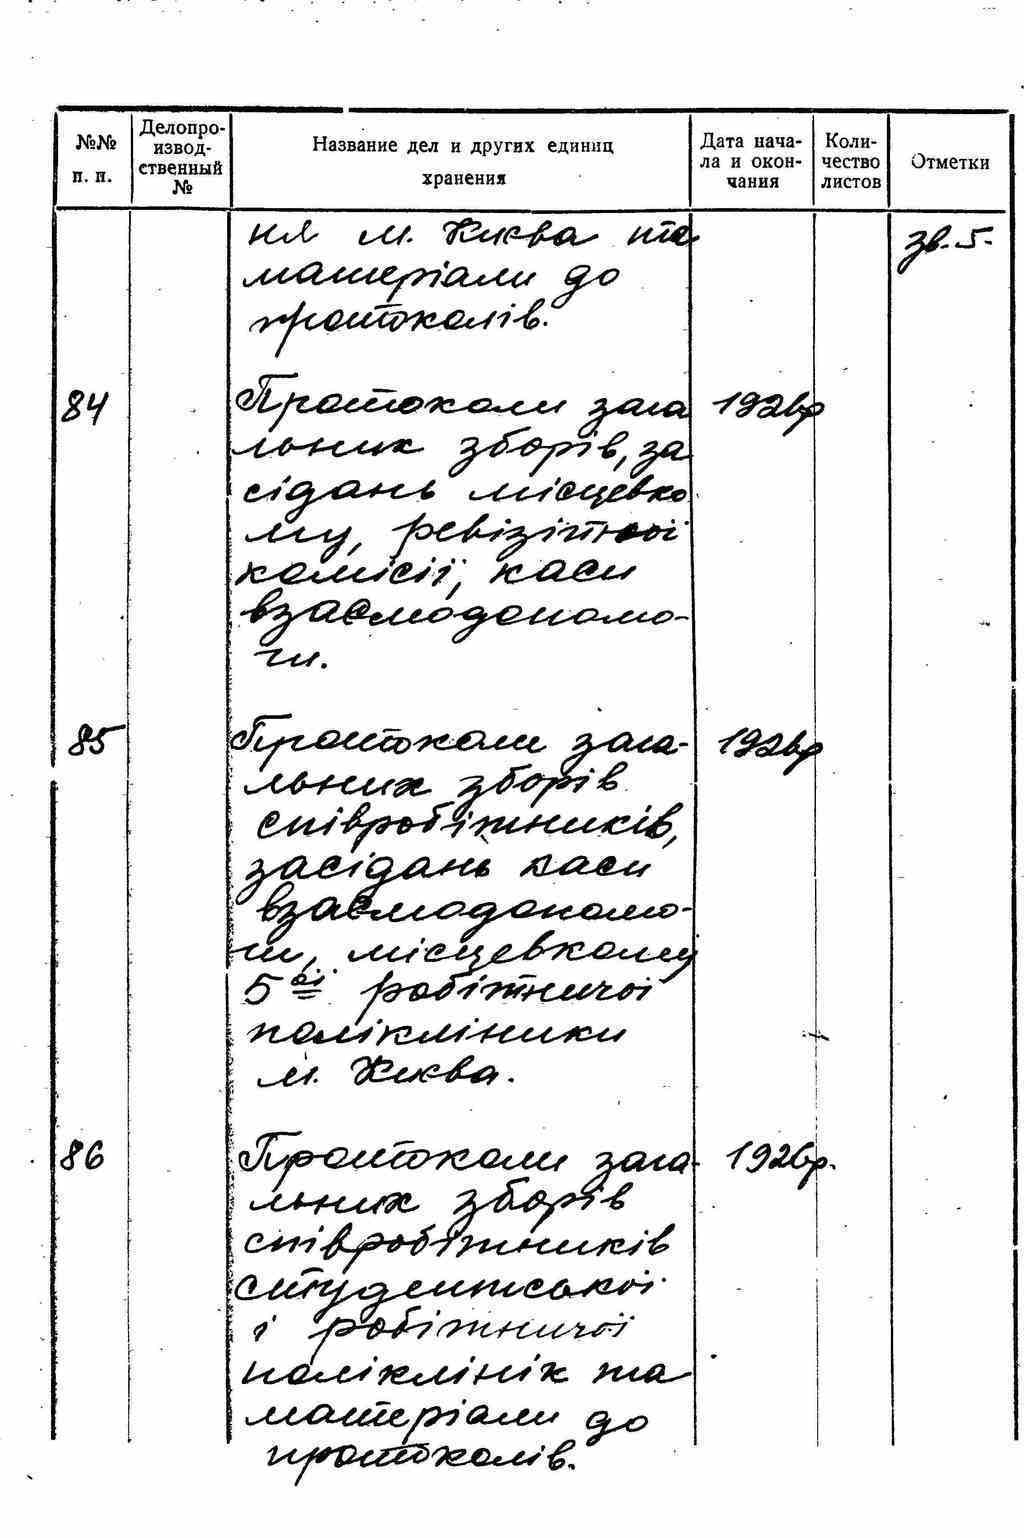 №№ п. п.
Делопроизвод-ственный №
Название дел и других единиц хранения
Дата нача-ла и окон-чания
Коли-чество листов
Отметки
ня м. Києва та
зв. 5.
матеріали до
протоколів.
84 Протоколи зага 1926р
льних зборів, за
сідань місцевко
му, ревізійної
комісії, каси
взаємодопомо-
ги.
85 Протоколи зага- 1926р
льних зборів
співробітників,
засідань каси
взаємодопомо-
ги, місцевкому
5ої робітничої
поліклініки
м. Києва.
86 Протоколи зага- 1926р.
льних зборів
співробітників
студентської
і робітничої
поліклінік та
матеріали до
протоколів.